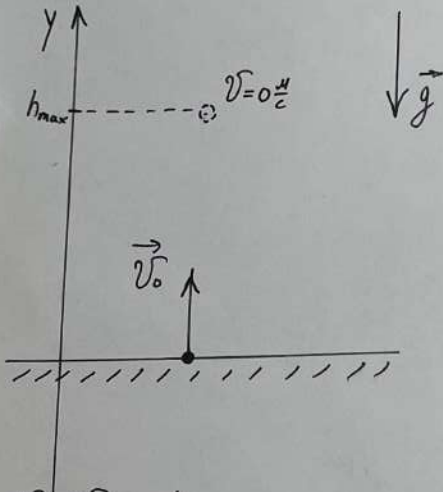 y
h_max
υ=0 м/с
g⃗
υ⃗₀